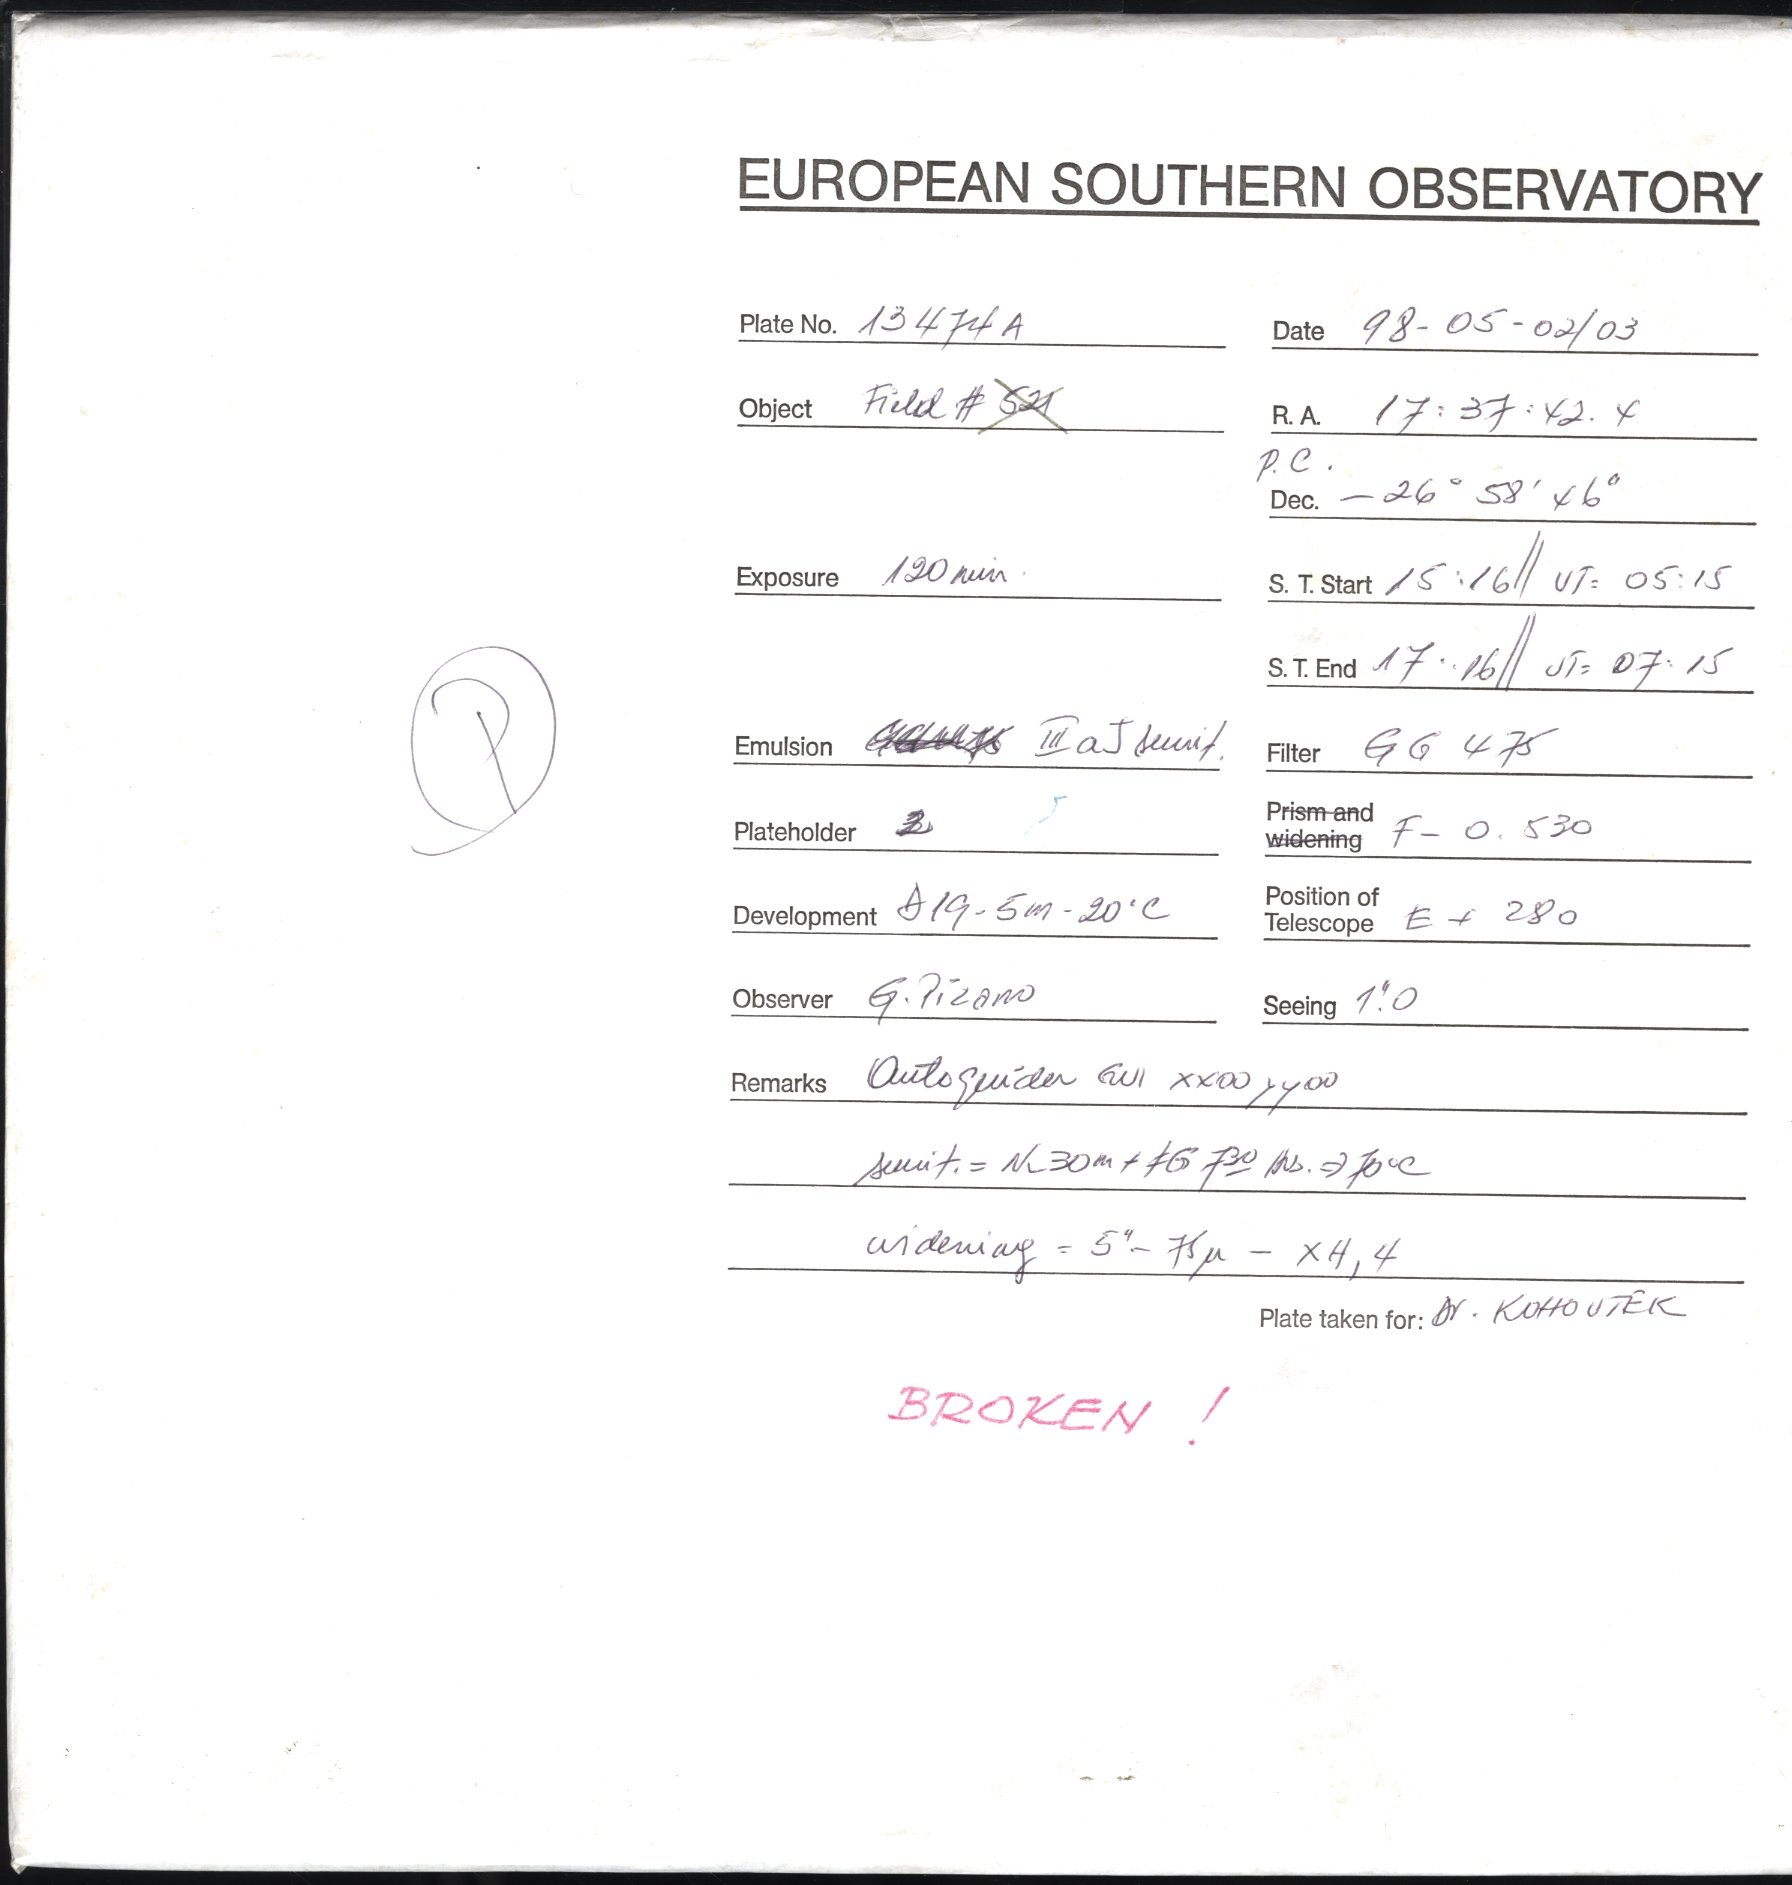 EUROPEAN SOUTHERN OBSERVATORY
Plate No. 13474A
Date 98-05-02/03
Object Field # 521
R. A. 17:37:42.4
P.C.
Dec. -26° 58' 46"
Exposure 120 min.
S. T. Start 15:16 // UT= 05:15
S. T. End 17:16 // UT= 07:15
P
Emulsion III a J sensit.
Filter GG 475
Plateholder
Prism and
widening F- 0.530
Development D19-5m-20°C
Position of
Telescope E + 280
Observer G. Pizarro
Seeing 1".0
Remarks Autoguider GUI xx00 yy00
sensit. = N 30m + FG 730 hrs. => 70°C
widening = 5" - 75µ - XH, 4
Plate taken for: Dr. KOHOUTEK
BROKEN !